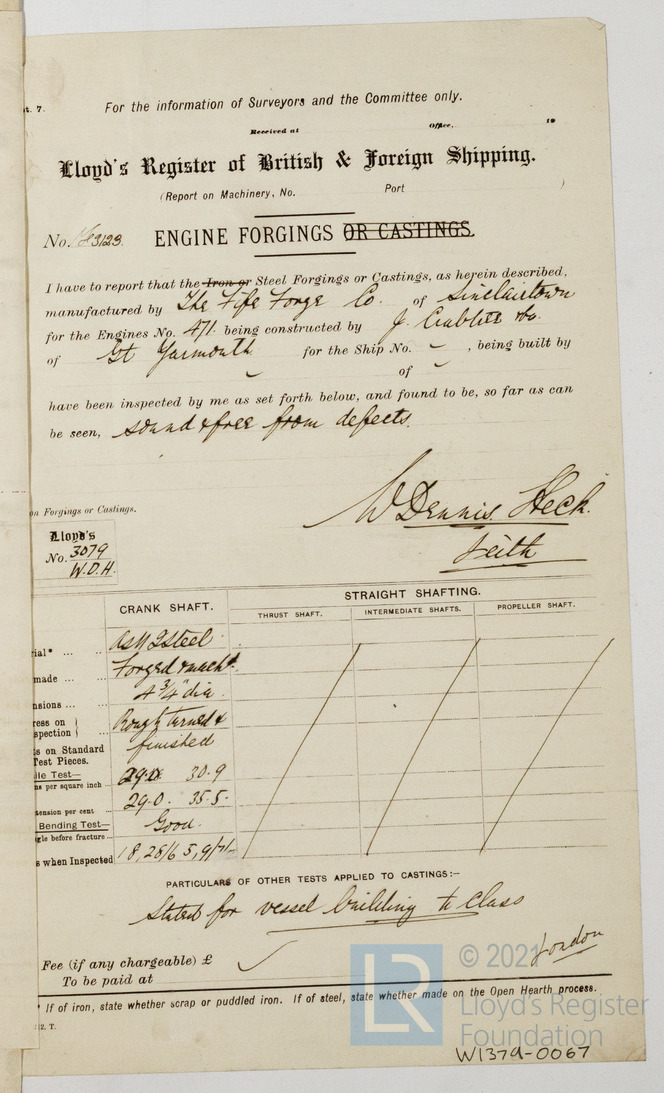 t. 7.
For the information of Surveyors and the Committee only.
Received at Office, 19
Lloyd's Register of British & Foreign Shipping.
(Report on Machinery, No. Port )
No. 3123. ENGINE FORGINGS OR CASTINGS.
I have to report that the Iron or Steel Forgings or Castings, as herein described,
manufactured by The Fife Forge Co. of Sinclairtown
for the Engines No. 471. being constructed by J. Crabtree & Co.
of Gt Yarmouth for the Ship No. , being built by
of
have been inspected by me as set forth below, and found to be, so far as can
be seen, sound & free from defects.
W Dennis Heck.
Leith
on Forgings or Castings.
Lloyd's
No. 3079
W.D.H.
CRANK SHAFT. STRAIGHT SHAFTING.
THRUST SHAFT. INTERMEDIATE SHAFTS. PROPELLER SHAFT.
rial* ... ... steel
made ... ... Forged & mach'd
nsions ... ... 4 3/4" dia.
ress on } Rough turned &
spection } finished
ts on Standard
Test Pieces.
le Test— 29.0 30.9
ns per square inch
tension per cent ... 29.0. 35.5.
Bending Test— Good.
gle before fracture ...
s when Inspected 18, 28/6 5, 9/7/-
PARTICULARS OF OTHER TESTS APPLIED TO CASTINGS:—
Stated for vessel building to Class
London
Fee (if any chargeable) £
To be paid at
* If of iron, state whether scrap or puddled iron. If of steel, state whether made on the Open Hearth process.
2. T.
© 2021
LR
Lloyd's Register
Foundation
W1379-0067